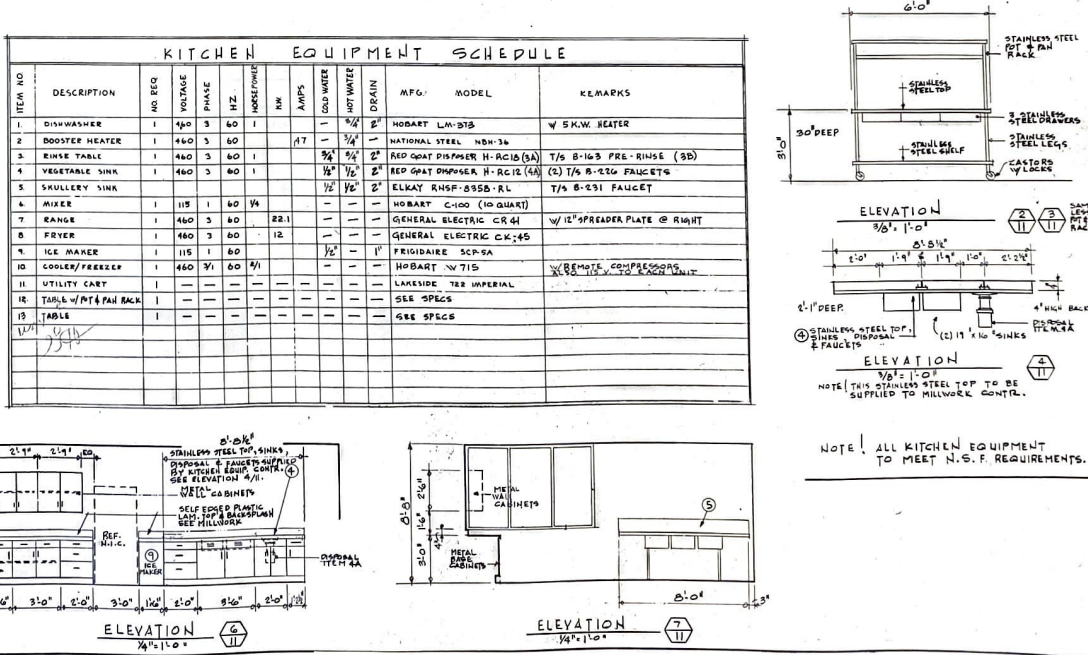 KITCHEN EQUIPMENT SCHEDULE
ITEM NO. DESCRIPTION NO. REQ VOLTAGE PHASE HZ HORSEPOWER K.W. AMPS COLD WATER HOT WATER DRAIN MFG. MODEL REMARKS
1. DISHWASHER 1 460 3 60 1 — 3/4" 2" HOBART LM-3T3 W/ 5 K.W. HEATER
2 BOOSTER HEATER 1 460 3 60 47 — 3/4" — NATIONAL STEEL NBH-36
3. RINSE TABLE 1 460 3 60 1 3/4" 3/4" 2" RED GOAT DISPOSER H-RC18 (3A) T/S B-163 PRE-RINSE (3B)
4 VEGETABLE SINK 1 460 3 60 1 1/2" 1/2" 2" RED GOAT DISPOSER H-RC12 (4A) (2) T/S B-226 FAUCETS
5. SKULLERY SINK 1/2" 1/2" 2" ELKAY RNSF-8358-RL T/S B-231 FAUCET
6. MIXER 1 115 1 60 1/4 — — — HOBART C-100 (10 QUART)
7. RANGE 1 460 3 60 22.1 — — — GENERAL ELECTRIC CR 41 W/ 12" SPREADER PLATE @ RIGHT
8 FRYER 1 460 3 60 12 — — — GENERAL ELECTRIC CK-45
9. ICE MAKER 1 115 1 60 1/2" — 1" FRIGIDAIRE SCP-5A
10. COOLER/FREEZER 1 460 3/1 60 2/1 — — — HOBART W 715 W/REMOTE COMPRESSORS
ALSO 115 V. TO EACH UNIT
11. UTILITY CART 1 — — — — — — — — — LAKESIDE 722 IMPERIAL
12. TABLE W/ POT & PAN RACK 1 — — — — — — — — — SEE SPECS
13 TABLE 1 — — — — — — — — — SEE SPECS
6'-0"
STAINLESS STEEL
POT & PAN
RACK
STAINLESS
STEEL TOP
3 STAINLESS
STEEL DRAWERS
3'-0"
30" DEEP
STAINLESS
STEEL LEGS
STAINLESS
STEEL SHELF
CASTORS
W/ LOCKS
ELEVATION
3/8" = 1'-0"
2
11
3
11
8'-8 1/2"
2'-0" 1'-9" 1'-9" 1'-0" 2'-2 1/2"
2'-1" DEEP.
4" HIGH BACK
4 STAINLESS STEEL TOP,
SINKS, DISPOSAL
& FAUCETS
(2) 19" x 16" SINKS
DISPOSAL
ITEM 4A
ELEVATION
3/8" = 1'-0"
4
11
NOTE! THIS STAINLESS STEEL TOP TO BE
SUPPLIED TO MILLWORK CONTR.
NOTE! ALL KITCHEN EQUIPMENT
TO MEET N.S.F. REQUIREMENTS.
2'-9" 2'-9" EQ.
8'-8 1/2"
STAINLESS STEEL TOP, SINKS,
DISPOSAL & FAUCETS SUPPLIED
BY KITCHEN EQUIP. CONTR. 4
SEE ELEVATION 4/11.
METAL
WALL CABINETS
SELF EDGED PLASTIC
LAM. TOP & BACKSPLASH
SEE MILLWORK
REF.
N.I.C.
9
ICE
MAKER
DISPOSAL
ITEM 4A
3'-0" 2'-0" 3'-0" 1'-6" 2'-0" 3'-6" 2'-0"
ELEVATION
1/4" = 1'-0"
6
11
8'-8"
2'-6"
1'-6"
4"
3'-0"
METAL
WALL
CABINETS
METAL
BASE
CABINETS
5
8'-0" 3"
ELEVATION
1/4" = 1'-0"
7
11